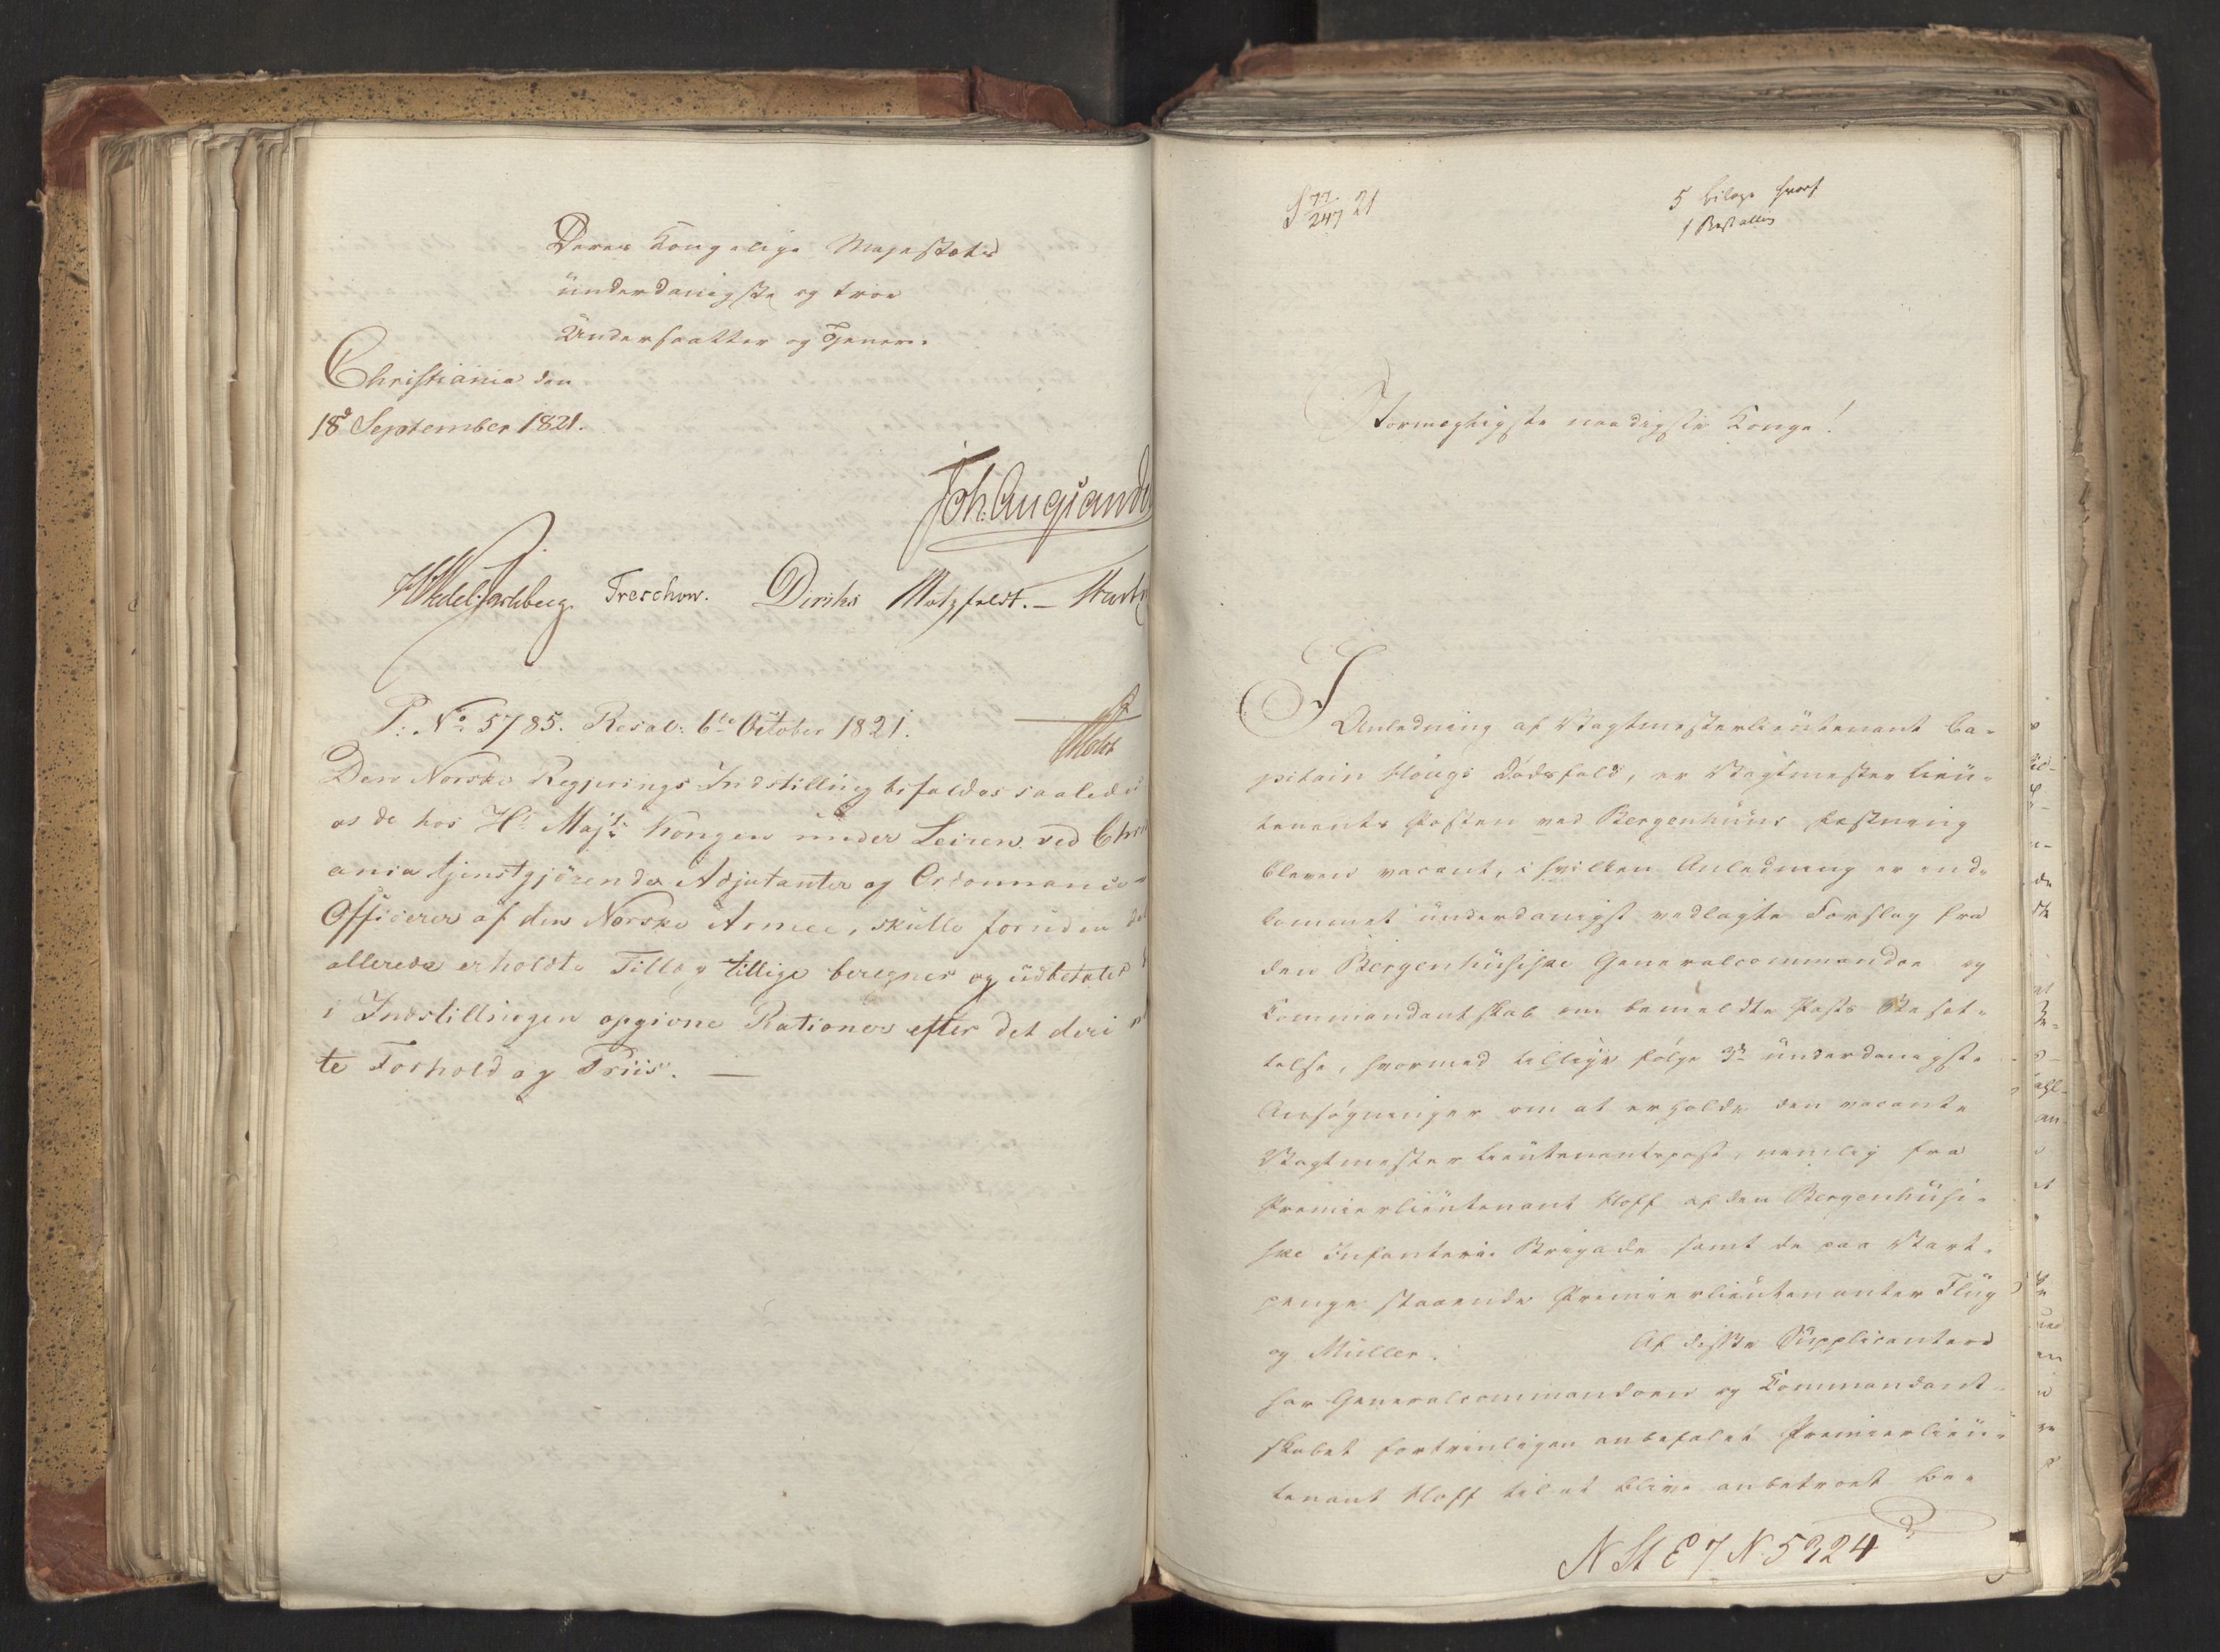 Deres Kongelige Majestæts
ünderdanigste og troe
Ündersaatter og Tjenere
Christiania den
18d September 1821.
Joh: Aug: Sande
HWedel Jarlsberg. Treschow. Diriks Motzfeldt. —
P: No 5785. Resol: 6te October 1821.
Den Norske Regjerings Indstilling bifaldes saaledes
at de hos Hs Majt Kongen ünder Leiren ved Chri
ania tjenstgjörende Adjutanter og Ordonnance
Officierer af den Norske Armee, skülle foruden det
allerede erholdte Tillæg tillige beregnes og üdbetales
i Indstillingen opgivne Rationer efter det deri
te Forhold og Priis. —
S 77/247 21
5 bilage hvoraf
1 Bestalling
Stormægtigste naadigste Konge!
I Anledning af Vagtmesterlieutenant Ca-
pitain Haugs Dödsfald, er Vagtmesterlieü-
tenants Posten ved Bergenhüüs Fæstning
bleven vacant, i hvilken Anledning er ind-
kommet ünderdanigst vedlagte Forslag fra
den Bergenhüsiske Generalcommandoe og
Commandantskab om bemeldte Posts Besæt-
telse, hvormed tillige fölge 3de ünderdanigste
Ansögninger om at erholde den vacante
Vagtmesterlieütenantspost, nemlig fra
Premierlieütenant Hoff af den Bergenhüsi-
ske Infanterie Brigade samt de paa Vart-
penge staaende Premierlieütenanter Flüg
og Müller. Af disse Supplicantere
har Generalcommandoen og Commandant-
skabet fortrinligen anbefalet Premierlieü-
tenant Hoff til at blive anbetroet be-
N St E 7 N. 5324